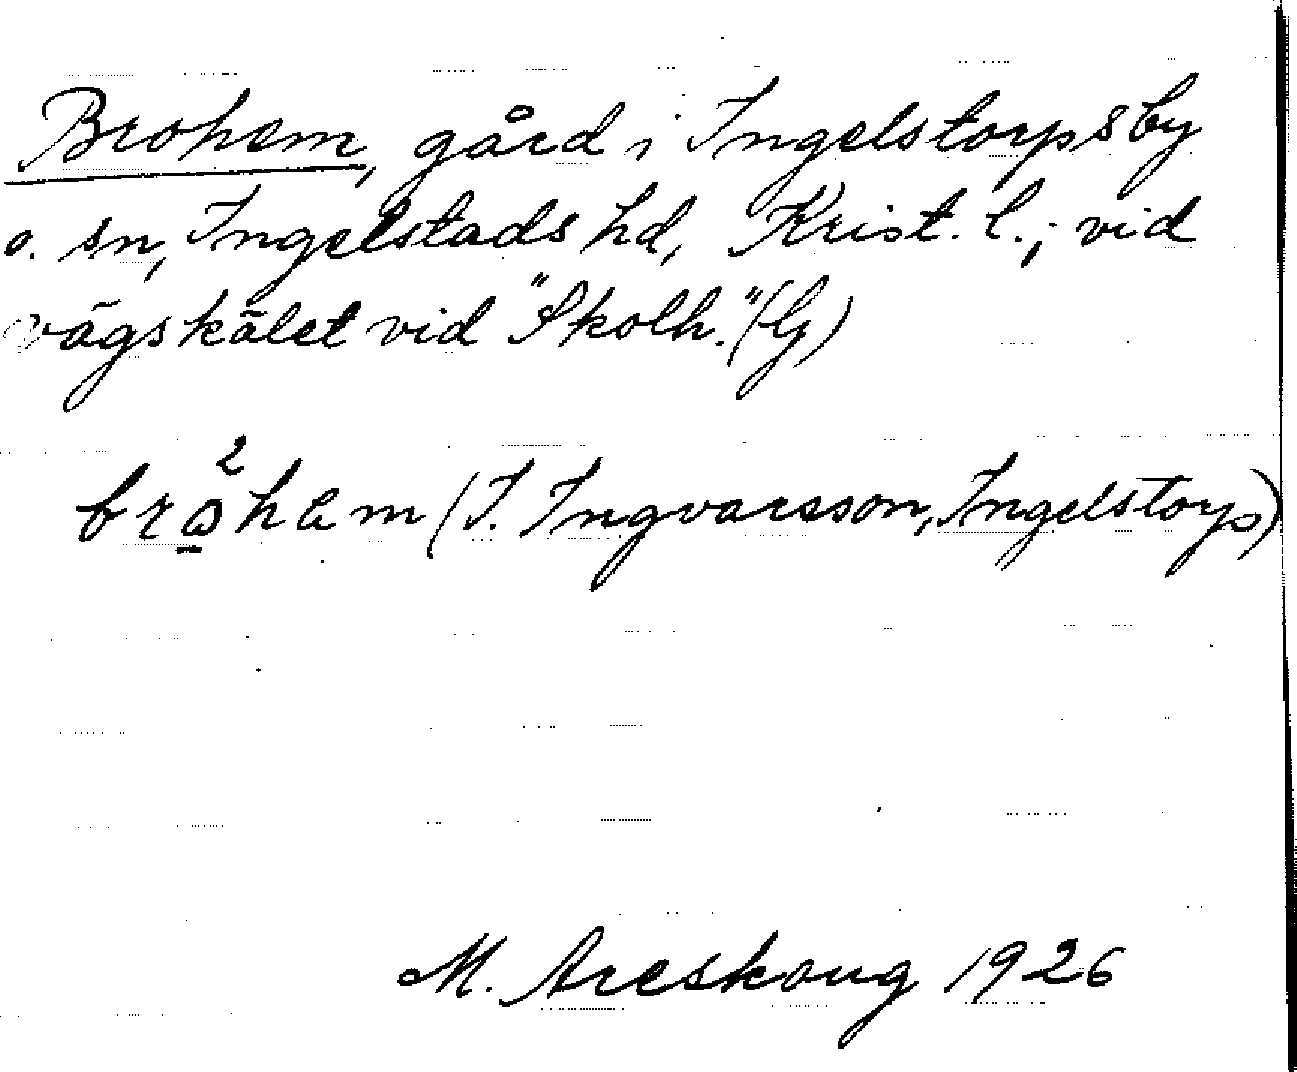 Brohem, gård i Ingelstorps by
o. sn, Ingelstads hd, Krist. l.; vid
vägskälet vid "Skolh." (G)
bro²ham (I. Ingvarsson, Ingelstorp)
M. Areskoug 1926